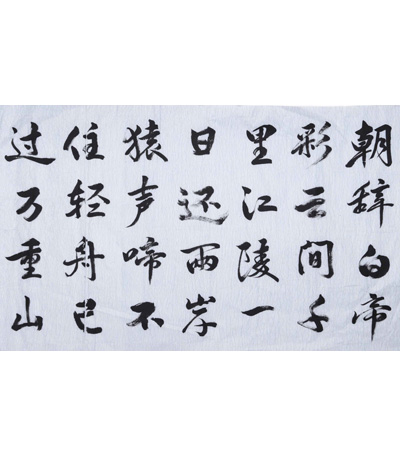 朝辞白帝
彩云间千
里江陵一
日还两岸
猿声啼不
住轻舟已
过万重山